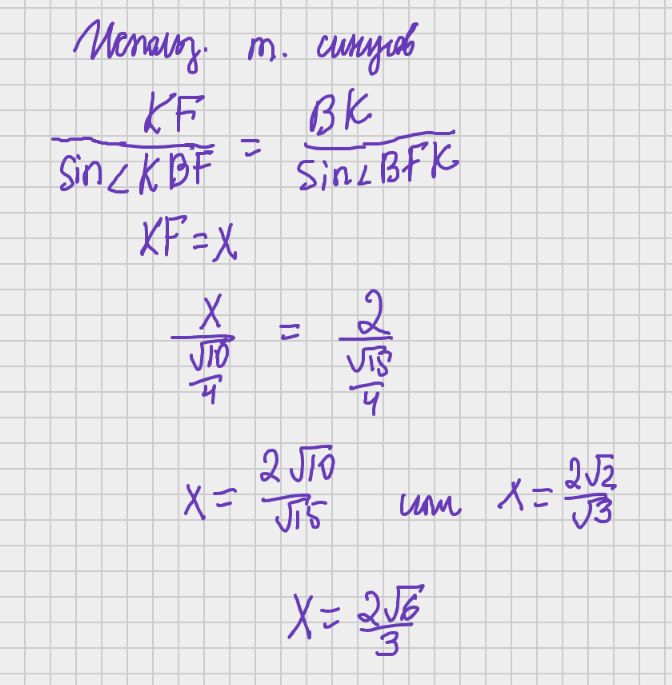 Использ. т. синусов
KF/sin∠KBF = BK/sin∠BFK
KF = x
x/(√10/4) = 2/(√15/4)
x = 2√10/√15 или x = 2√2/√3
x = 2√6/3